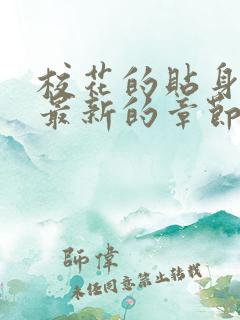 校花的貼身
最新的章節
師偉
未经同意禁止转载